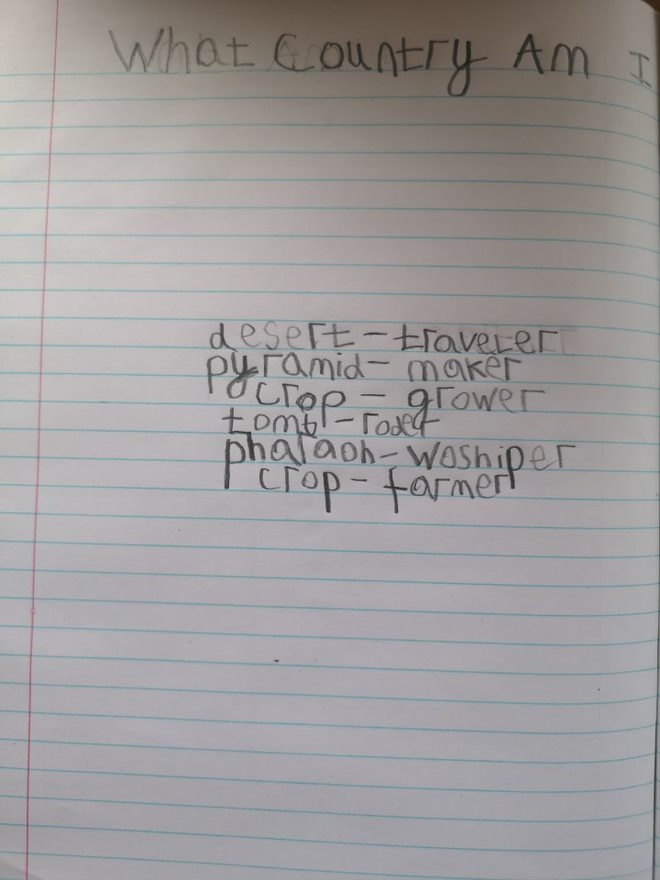 What Country Am I
desert-traverer
pyramid-maker
crop-grower
tomb-rober
pharaoh-woshiper
crop-farmer